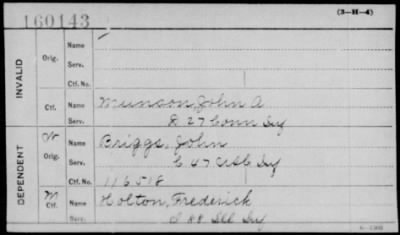 (3-H-4)
160143
INVALID
Orig.
Name
Serv.
Ctf. No.
Ctf.
Name Munson, John A
D 27 Conn Inf
DEPENDENT
W
Orig.
Name Briggs, John
Serv. C 47 Inf
Ctf. No. 116518
M
Ctf.
Name Holton, Frederick
Serv. I 88 Ill Inf